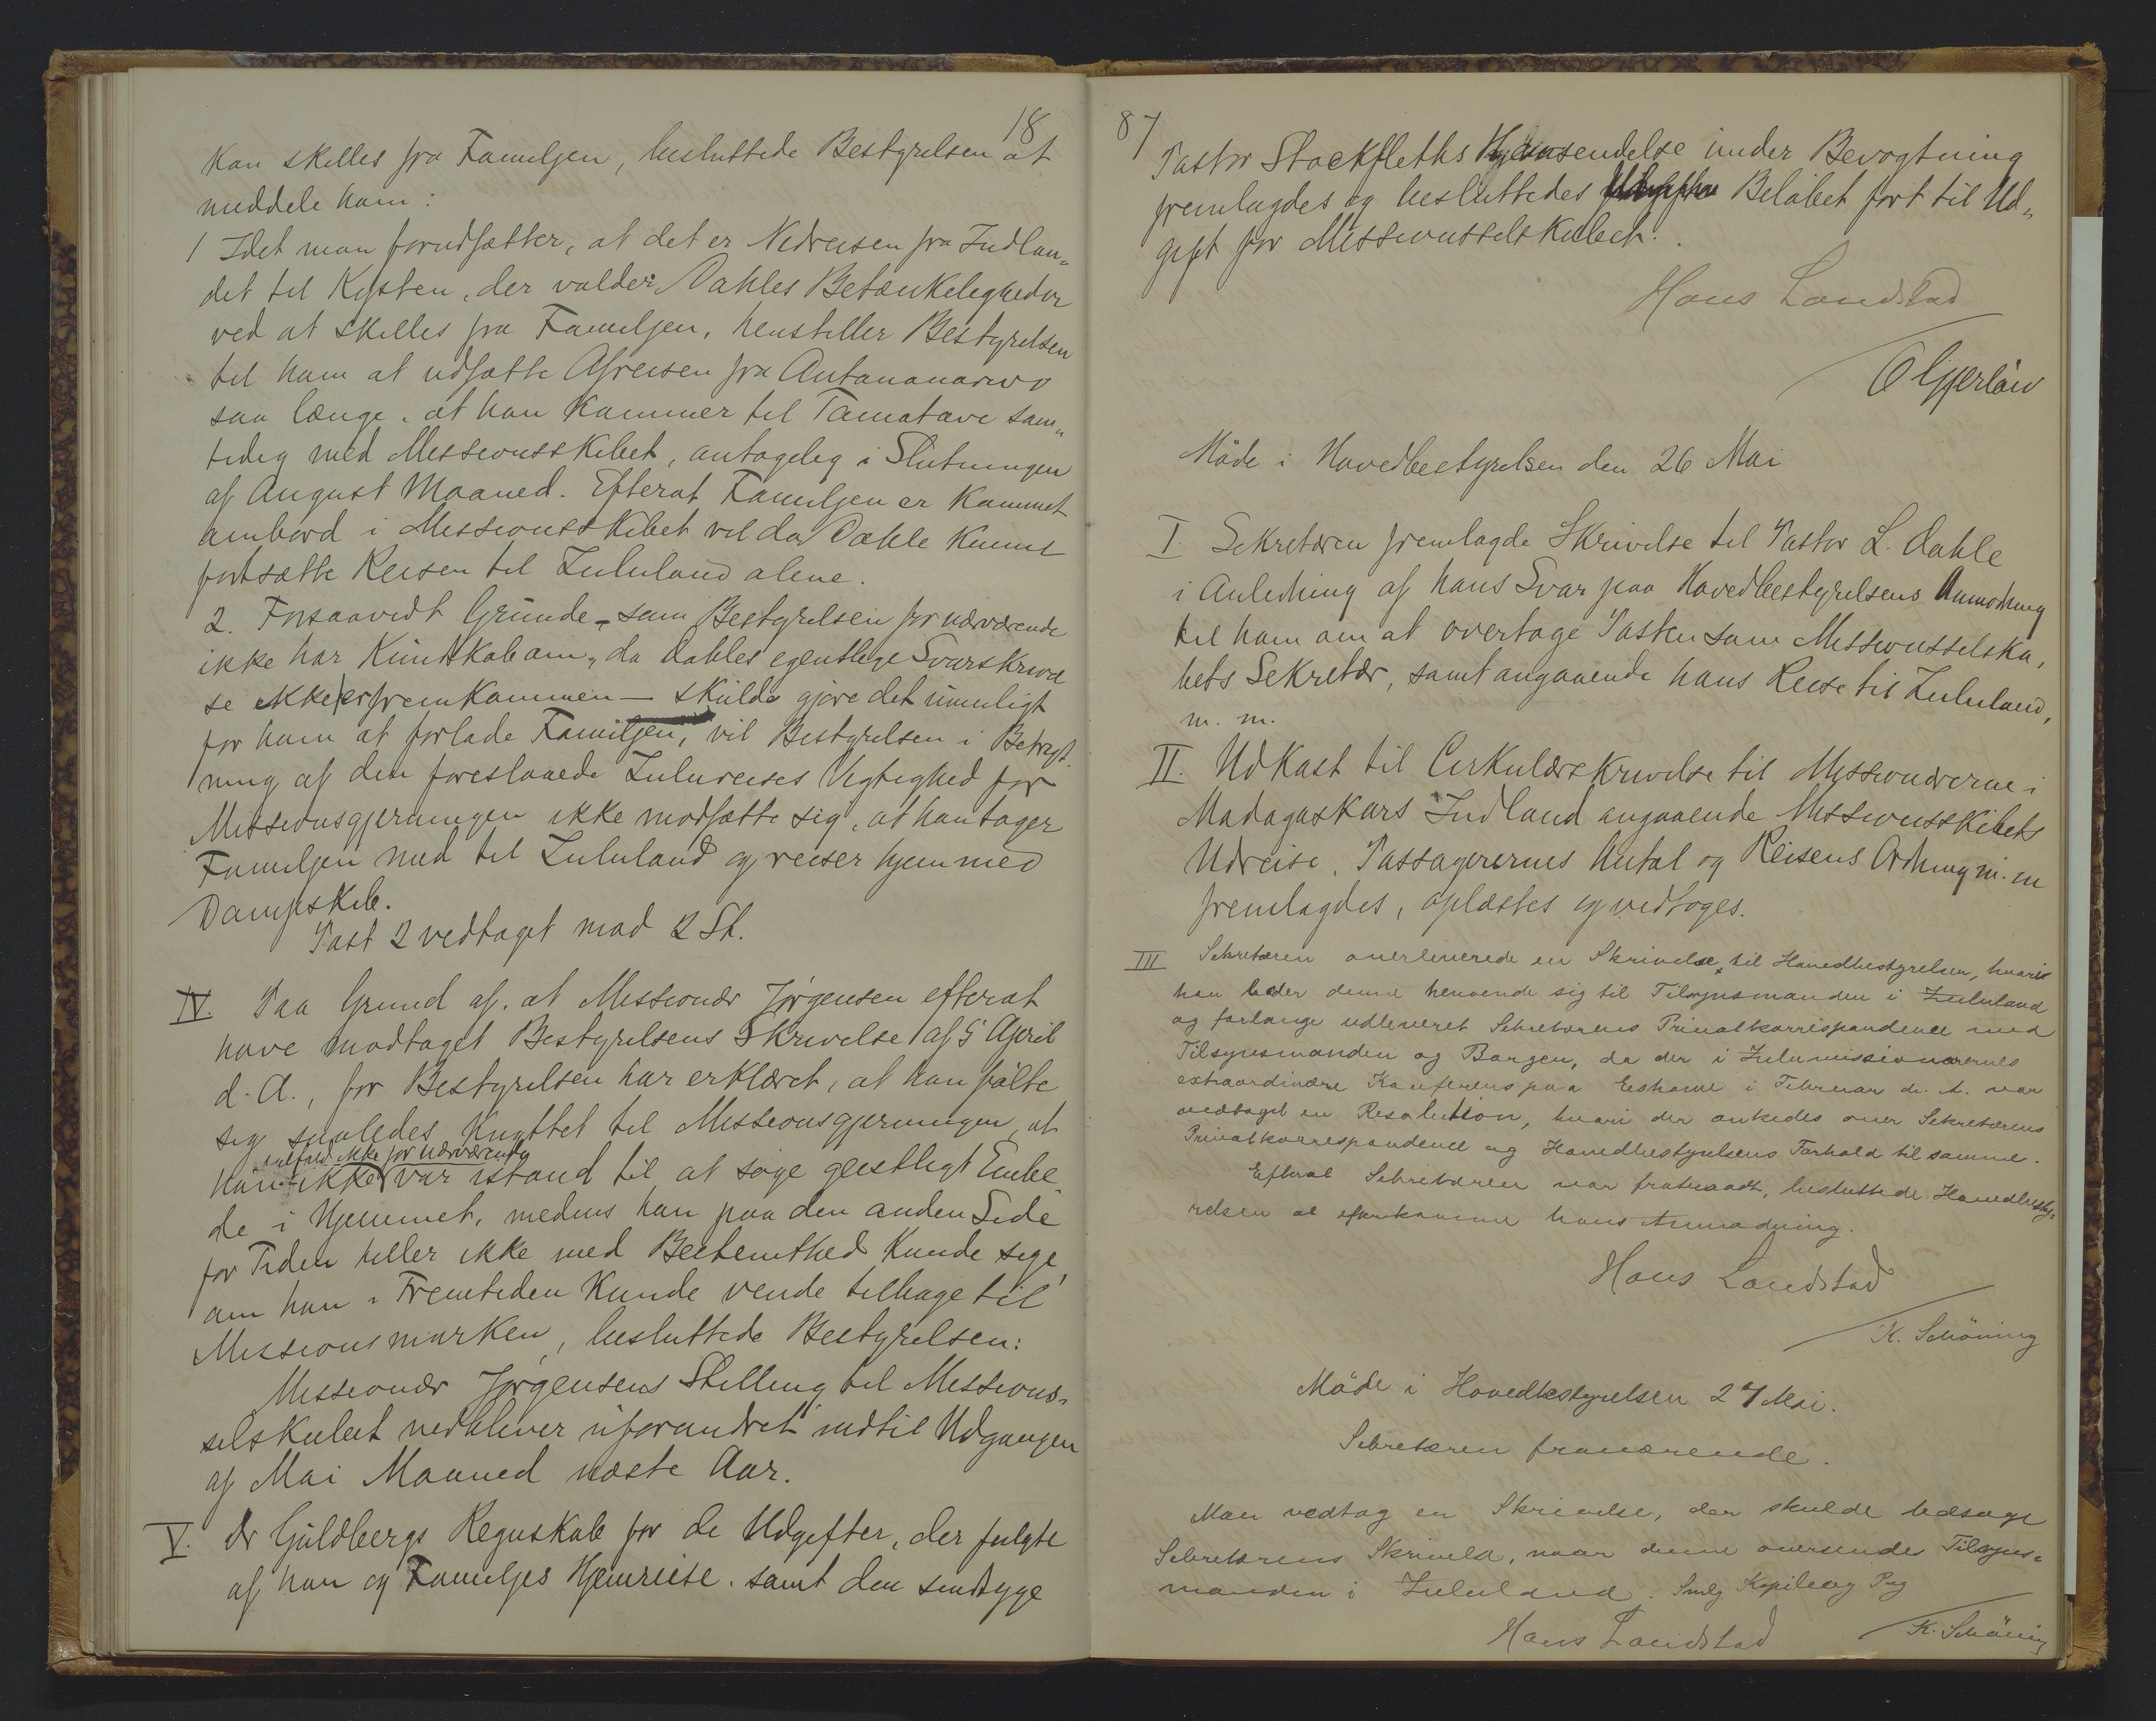 18
kan skilles fra Familjen, besluttede Bestyrelsen at
meddele ham:
1 Idet man forudsætter, at det er Nedreisen fra Indlan„
det til Kysten, der volder Dahles Betænkeligheder
ved at skilles fra Familjen, henstiller Bestyrelsen
til ham at udsætte Afreisen fra Antananarivo
saa længe, at han kommer til Tamatave sam„
tidig med Missionsskibet, antagelig i Slutningen
af August Maaned. Efterat Familjen er kommet
ambord i Missionsskibet vil da Dahle kunne
fortsætte Reisen til Zululand alene.
2. Forsaavidt Grunde – som Bestyrelsen for nærværende
ikke har Kundskab om, da Dahles egentlige Svarskrivel
se ikke er fremkommen – skulde gjøre det umuligt
for ham at forlade Familjen, vil Bestyrelsen i Betragt.
ning af den foreslaaede Zulureises Vigtighed for
Missionsgjerningen ikke modsætte sig, at han tager
Familjen med til Zululand og reiser hjem med
Dampskib.
Post 2 vedtaget mod 2 St.
IV. Paa Grund af, at Missionær Jørgensen efterat
have modtaget Bestyrelsens Skrivelse af 5 April
d. A., for Bestyrelsen har erklæret, at han følte
sig saaledes knyttet til Missionsgjerningen, at
ialfald ikke for nærværende
han ikke var istand til at søge geistligt Embe
de i Hjemmet, medens han paa den anden Side
for Tiden heller ikke med Bestemthed kunde sige,
om han i Fremtiden kunde vende tilbage til
Missionsmarken, besluttede Bestyrelsen:
Missionær Jørgensens Stilling til Missions„
selskabet vedbliver uforandret indtil Udgangen
af Mai Maaned næste Aar.
V. Dr Guldbergs Regnskab for de Udgifter, der fulgte
af han og Familjes Hjemreise, samt den sindssyge
87
Pastor Stockfleths Hjemsendelse under Bevogtning
fremlagdes og besluttedes Beløbet ført til Ud„
gift for Missionsselskabet.
Hans Landstad
O Gjerløw
Möde i Hovedbestyrelsen den 26 Mai
I. Sekretæren fremlagde Skrivelse til Pastor L. Dahle
i Anledning af hans Svar paa Hovedbestyrelsens Anmodning
til ham om at overtage Posten som Missionsselska„
bets Sekretær, samt angaaende hans Reise til Zululand,
m. m.
II. Udkast til Cirkulærskrivelse til Missionærerne i
Madagaskars Indland angaaende Missionsskibets
Udreise, Passagerernes Antal og Reisens Ordning m. m
fremlagdes, oplæstes og vedtoges.
III Sekretæren overleverede en Skrivelse til Hovedbestyrelsen, hvori
han beder denne henvende sig til Tilsynsmanden i Zululand
og forlange udleveret Sekretærens Privatkorrespondence med
Tilsynsmanden og Borgen, da der i Zulumissionærernes
extraordinære Konferens paa Eshowe i Februar d. A. var
vedtaget en Resolution, hvori der ankedes over Sekretærens
Privatkorrespondence og Hovedbestyrelsens Forhold til samme.
Efterat Sekretæren var fratraadt, besluttede Hovedbesty„
relsen at efterkomme hans Anmodning.
Hans Landstad
K. Schöning
Möde i Hovedbestyrelsen 27 Mai.
Sekretæren fraværende.
Man vedtog en Skrivelse, der skulde ledsage
Sekretærens Skrivelse, naar denne oversendes Tilsyns„
manden i Zululand. Smlg Kopibog Pag
Hans Landstad
K. Schöning